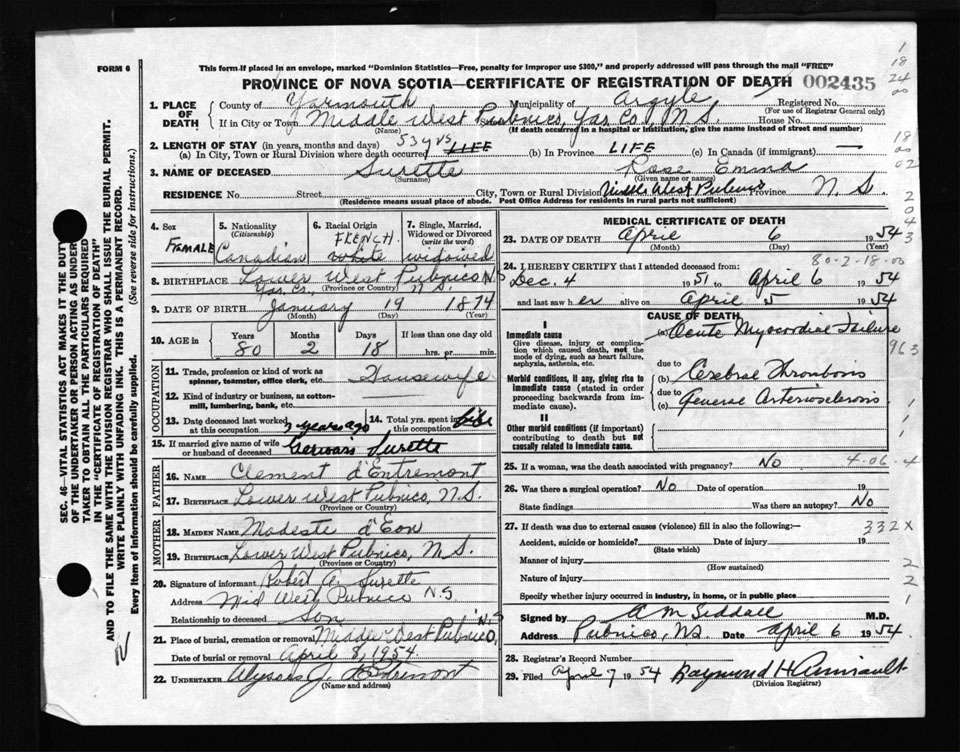 FORM 6
This form if placed in an envelope, marked "Dominion Statistics—Free, penalty for improper use $300," and properly addressed will pass through the mail "FREE"
PROVINCE OF NOVA SCOTIA—CERTIFICATE OF REGISTRATION OF DEATH 002435
1. PLACE OF DEATH
County of Yarmouth Municipality of Argyle Registered No.
(For use of Registrar General only)
If in City or Town Middle West Pubnico, Yar. Co., N.S. House No.
(Name) (If death occurred in a hospital or institution, give the name instead of street and number)
2. LENGTH OF STAY (in years, months and days)
(a) In City, Town or Rural Division where death occurred 53 yrs LIFE (b) In Province LIFE (c) In Canada (if immigrant) —
3. NAME OF DECEASED Surette Rose Emma
(Surname) (Given name or names)
RESIDENCE No. Street City, Town or Rural Division Middle West Pubnico Province N S.
(Residence means usual place of abode. Post Office Address for residents in rural parts not sufficient)
4. Sex Famale
5. Nationality (Citizenship) Canadian
6. Racial Origin FRENCH. white
7. Single, Married, Widowed or Divorced (write the word) widowed
8. BIRTHPLACE Lower West Pubnico N S
Yar. Co., N. S.
(Province or Country)
9. DATE OF BIRTH January 19 1874
(Month) (Day) (Year)
10. AGE in Years 80 Months 2 Days 18 If less than one day old
hrs. pr. min.
OCCUPATION
11. Trade, profession or kind of work as spinner, teamster, office clerk, etc. Housewife
12. Kind of industry or business, as cotton-mill, lumbering, bank, etc.
13. Date deceased last worked at this occupation 2 years ago
14. Total yrs. spent in this occupation life
15. If married give name of wife or husband of deceased Gervais Surette
FATHER
16. NAME Clement d'Entremont
17. BIRTHPLACE Lower West Pubnico, N.S.
(Province or Country)
MOTHER
18. MAIDEN NAME Modeste d'Eon
19. BIRTHPLACE Lower West Pubnico, N.S.
(Province or Country)
20. Signature of informant Robert A. Surette
Address Mid West Pubnico N.S
Relationship to deceased Son
21. Place of burial, cremation or removal Middle West Pubnico, N.S
Date of burial or removal April 8, 1954.
22. UNDERTAKER J. d'Entremont
(Name and address)
MEDICAL CERTIFICATE OF DEATH
23. DATE OF DEATH April 6 1954
(Month) (Day) (Year)
80-2-18-00
24. I HEREBY CERTIFY that I attended deceased from:
Dec. 4 1951 to April 6 1954
and last saw h er alive on April 5 1954
CAUSE OF DEATH
I
Immediate cause
Give disease, injury or complication which caused death, not the mode of dying, such as heart failure, asphyxia, asthenia, etc.
(a) Acute Myocardial Failure
963
Morbid conditions, if any, giving rise to immediate cause (stated in order proceeding backwards from immediate cause).
due to
(b) Cerebral Thrombosis
due to
(c) General Arteriosclerosis
II
Other morbid conditions (if important) contributing to death but not causally related to immediate cause.
25. If a woman, was the death associated with pregnancy? No 4-06-4
26. Was there a surgical operation? No Date of operation 19
State findings Was there an autopsy? No
27. If death was due to external causes (violence) fill in also the following:— 332X
Accident, suicide or homicide? Date of injury 19
(State which)
Manner of injury
(How sustained)
Nature of injury
Specify whether injury occurred in industry, in home, or in public place
Signed by A M Siddall M.D.
Address Pubnico, N.S. Date April 6 1954
28. Registrar's Record Number
29. Filed April 7 1954 Raymond H Amirault
(Division Registrar)
SEC. 46—VITAL STATISTICS ACT MAKES IT THE DUTY OF THE UNDERTAKER OR PERSON ACTING AS UNDERTAKER TO OBTAIN ALL THE PARTICULARS REQUIRED IN THE "CERTIFICATE OF REGISTRATION OF DEATH" AND TO FILE THE SAME WITH THE DIVISION REGISTRAR WHO SHALL ISSUE THE BURIAL PERMIT.
WRITE PLAINLY WITH UNFADING INK. THIS IS A PERMANENT RECORD.
Every item of information should be carefully supplied. (See reverse side for instructions.)
1
18
24
00
18
00
02
2
0
4
3
1
1
1
2
2
1